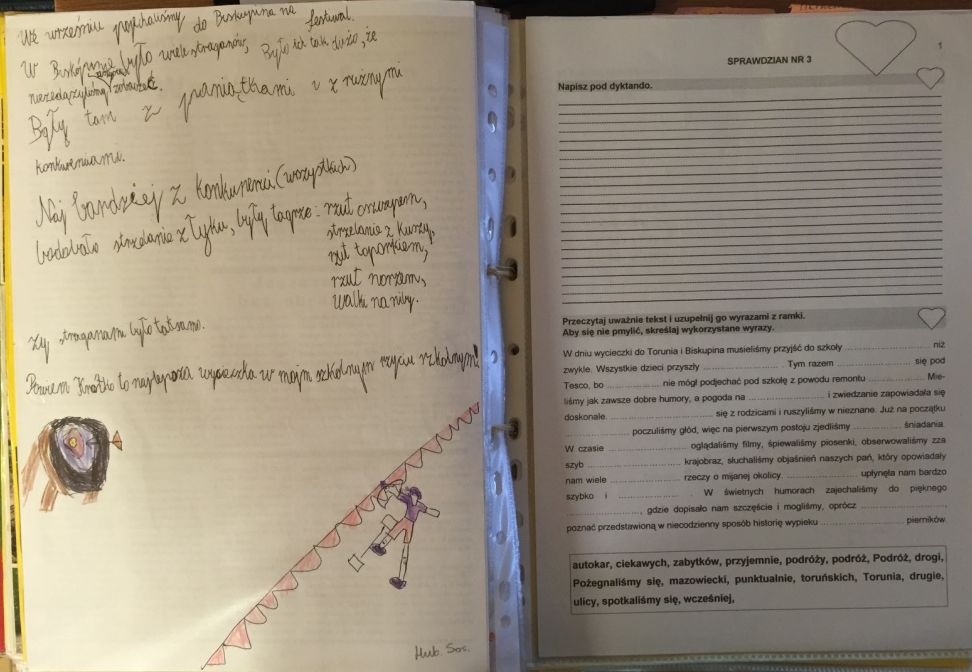 We wrześniu pojechaliśmy do Biskupina na festiwal.
W Biskupinie było wiele straganów, Było ich tak dużo, że
niezdążyliśmy zobaczeć.
Były tam z pamiątkami i z rużnymi
konkurenciami.
Naj bardziej z konkurencii (wszystkich)
bodobało strzelanie z łyku, były tagrze: rzut oszczepem,
strzelanie z kuszy,
rzut toporkiem,
rzut norzem,
walki naniby.
Zy straganami było tatsamo.
Słowem Krótko to najlepsza wycieczka w mojm szkolnym rzyciu szkolnym!
Hub. Sos.
1
SPRAWDZIAN NR 3
Napisz pod dyktando.
Przeczytaj uważnie tekst i uzupełnij go wyrazami z ramki.
Aby się nie pmylić, skreślaj wykorzystane wyrazy.
W dniu wycieczki do Torunia i Biskupina musieliśmy przyjść do szkoły .................... niż
zwykle. Wszystkie dzieci przyszły .................... . Tym razem .................... się pod
Tesco, bo .................... nie mógł podjechać pod szkołę z powodu remontu .................... . Mie-
liśmy jak zawsze dobre humory, a pogoda na .................... i zwiedzanie zapowiadała się
doskonale. .................... się z rodzicami i ruszyliśmy w nieznane. Już na początku
.................... poczuliśmy głód, więc na pierwszym postoju zjedliśmy .................... śniadania.
W czasie .................... oglądaliśmy filmy, śpiewaliśmy piosenki, obserwowaliśmy zza
szyb .................... krajobraz, słuchaliśmy objaśnień naszych pań, który opowiadały
nam wiele .................... rzeczy o mijanej okolicy. .................... upłynęła nam bardzo
szybko i .................... . W świetnych humorach zajechaliśmy do pięknego
...................., gdzie dopisało nam szczęście i mogliśmy, oprócz ....................,
poznać przedstawioną w niecodzienny sposób historię wypieku .................... pierników.
autokar, ciekawych, zabytków, przyjemnie, podróży, podróż, Podróż, drogi,
Pożegnaliśmy się, mazowiecki, punktualnie, toruńskich, Torunia, drugie,
ulicy, spotkaliśmy się, wcześniej,